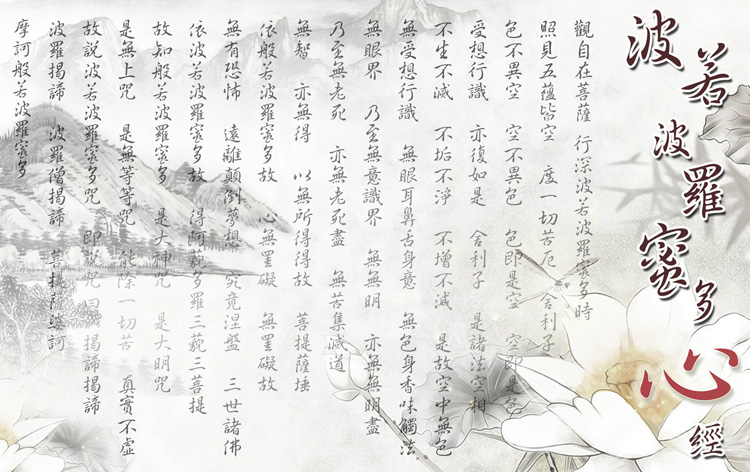 波若波羅蜜多心經
觀自在菩薩 行深波若波羅蜜多時
照見五蘊皆空 度一切苦厄 舍利子
色不異空 空不異色 色即是空 空即是色
受想行識 亦復如是 舍利子 是諸法空相
不生不滅 不垢不淨 不增不減 是故空中無色
無受想行識 無眼耳鼻舌身意 無色身香味觸法
無眼界 乃至無意識界 無無明 亦無無明盡
乃至無老死 亦無老死盡 無苦集滅道
無智 亦無得 以無所得得故 菩提薩埵
依般若波羅蜜多故 心無罣礙 無罣礙故
無有恐怖 遠離顛倒夢想 究竟涅盤 三世諸佛
依波若波羅蜜多故 得阿藐多羅三藐三菩提
故知般若波羅蜜多 是大神咒 是大明咒
是無上咒 是無等等咒 能除一切苦 真實不虛
故說波若波羅蜜多咒 即說咒曰 揭諦揭諦
波羅揭諦 波羅僧揭諦 菩提薩婆訶
摩訶般若波羅蜜多